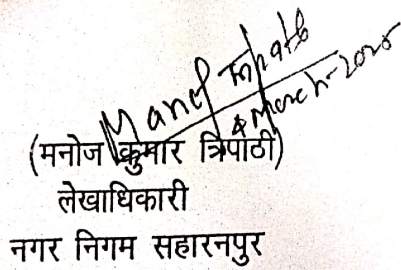 Manoj Tripathi
4 March-2025
(मनोज कुमार त्रिपाठी)
लेखाधिकारी
नगर निगम सहारनपुर